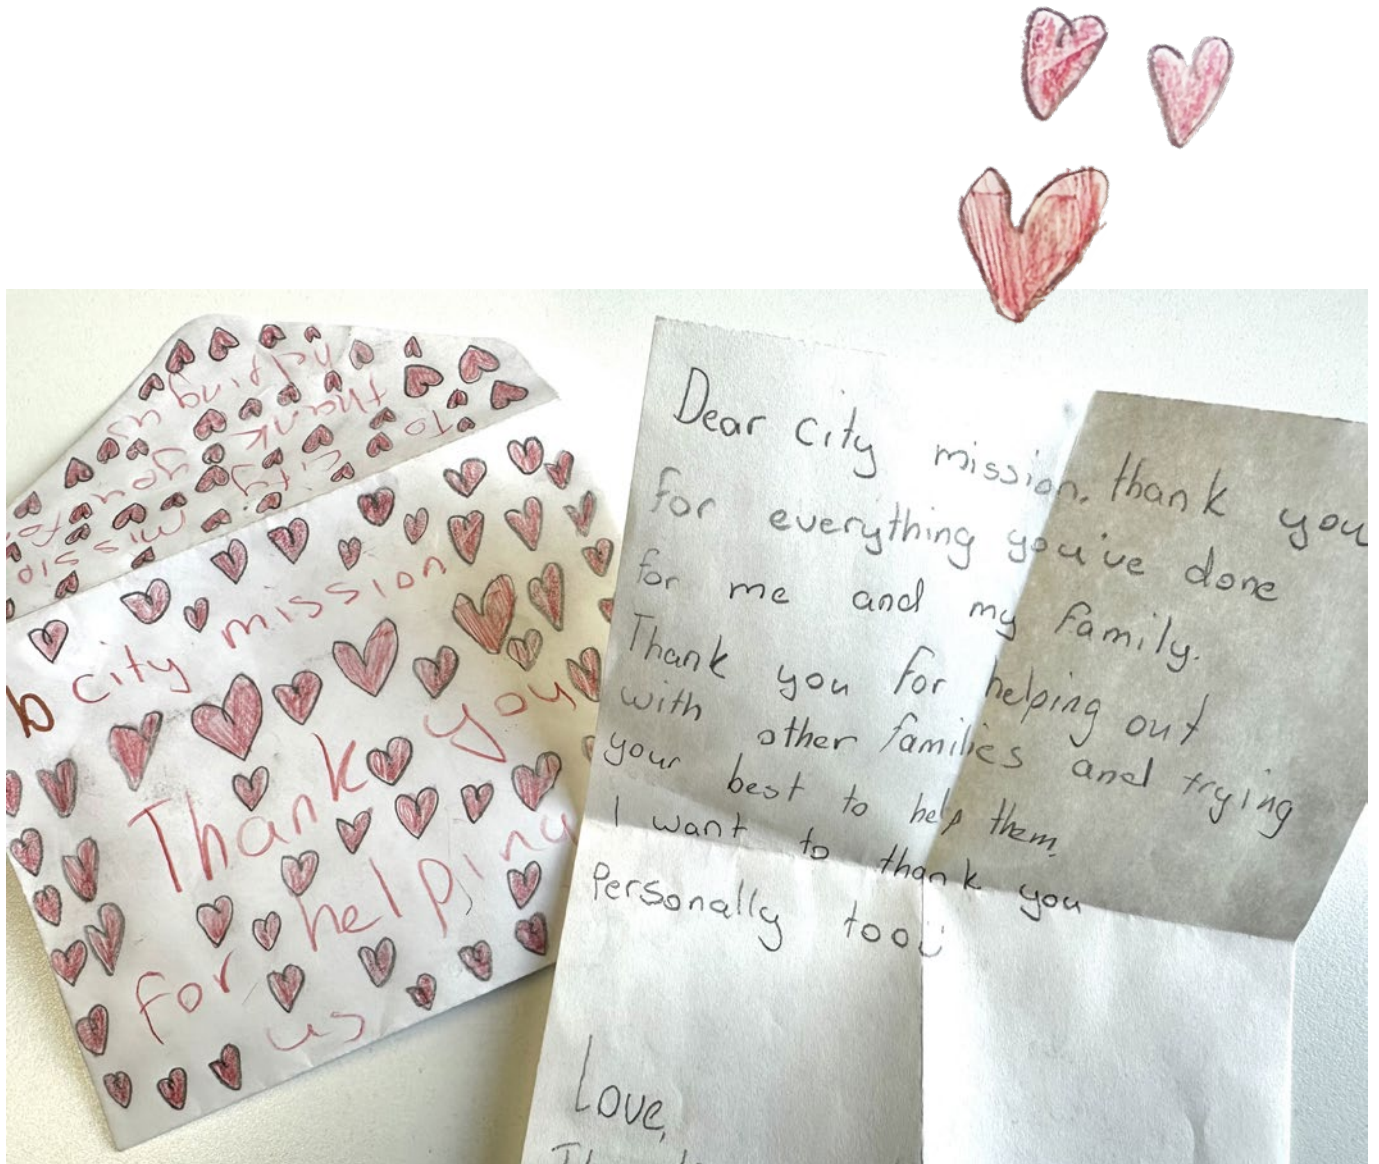 To
city
mission
thank
you
for
helping
us
city mission
Thank you
for helping
us
Dear city mission, thank you
for everything you've done
for me and my family.
Thank you for helping out
with other families and trying
your best to help them.
I want to thank you
Personally too
Love,